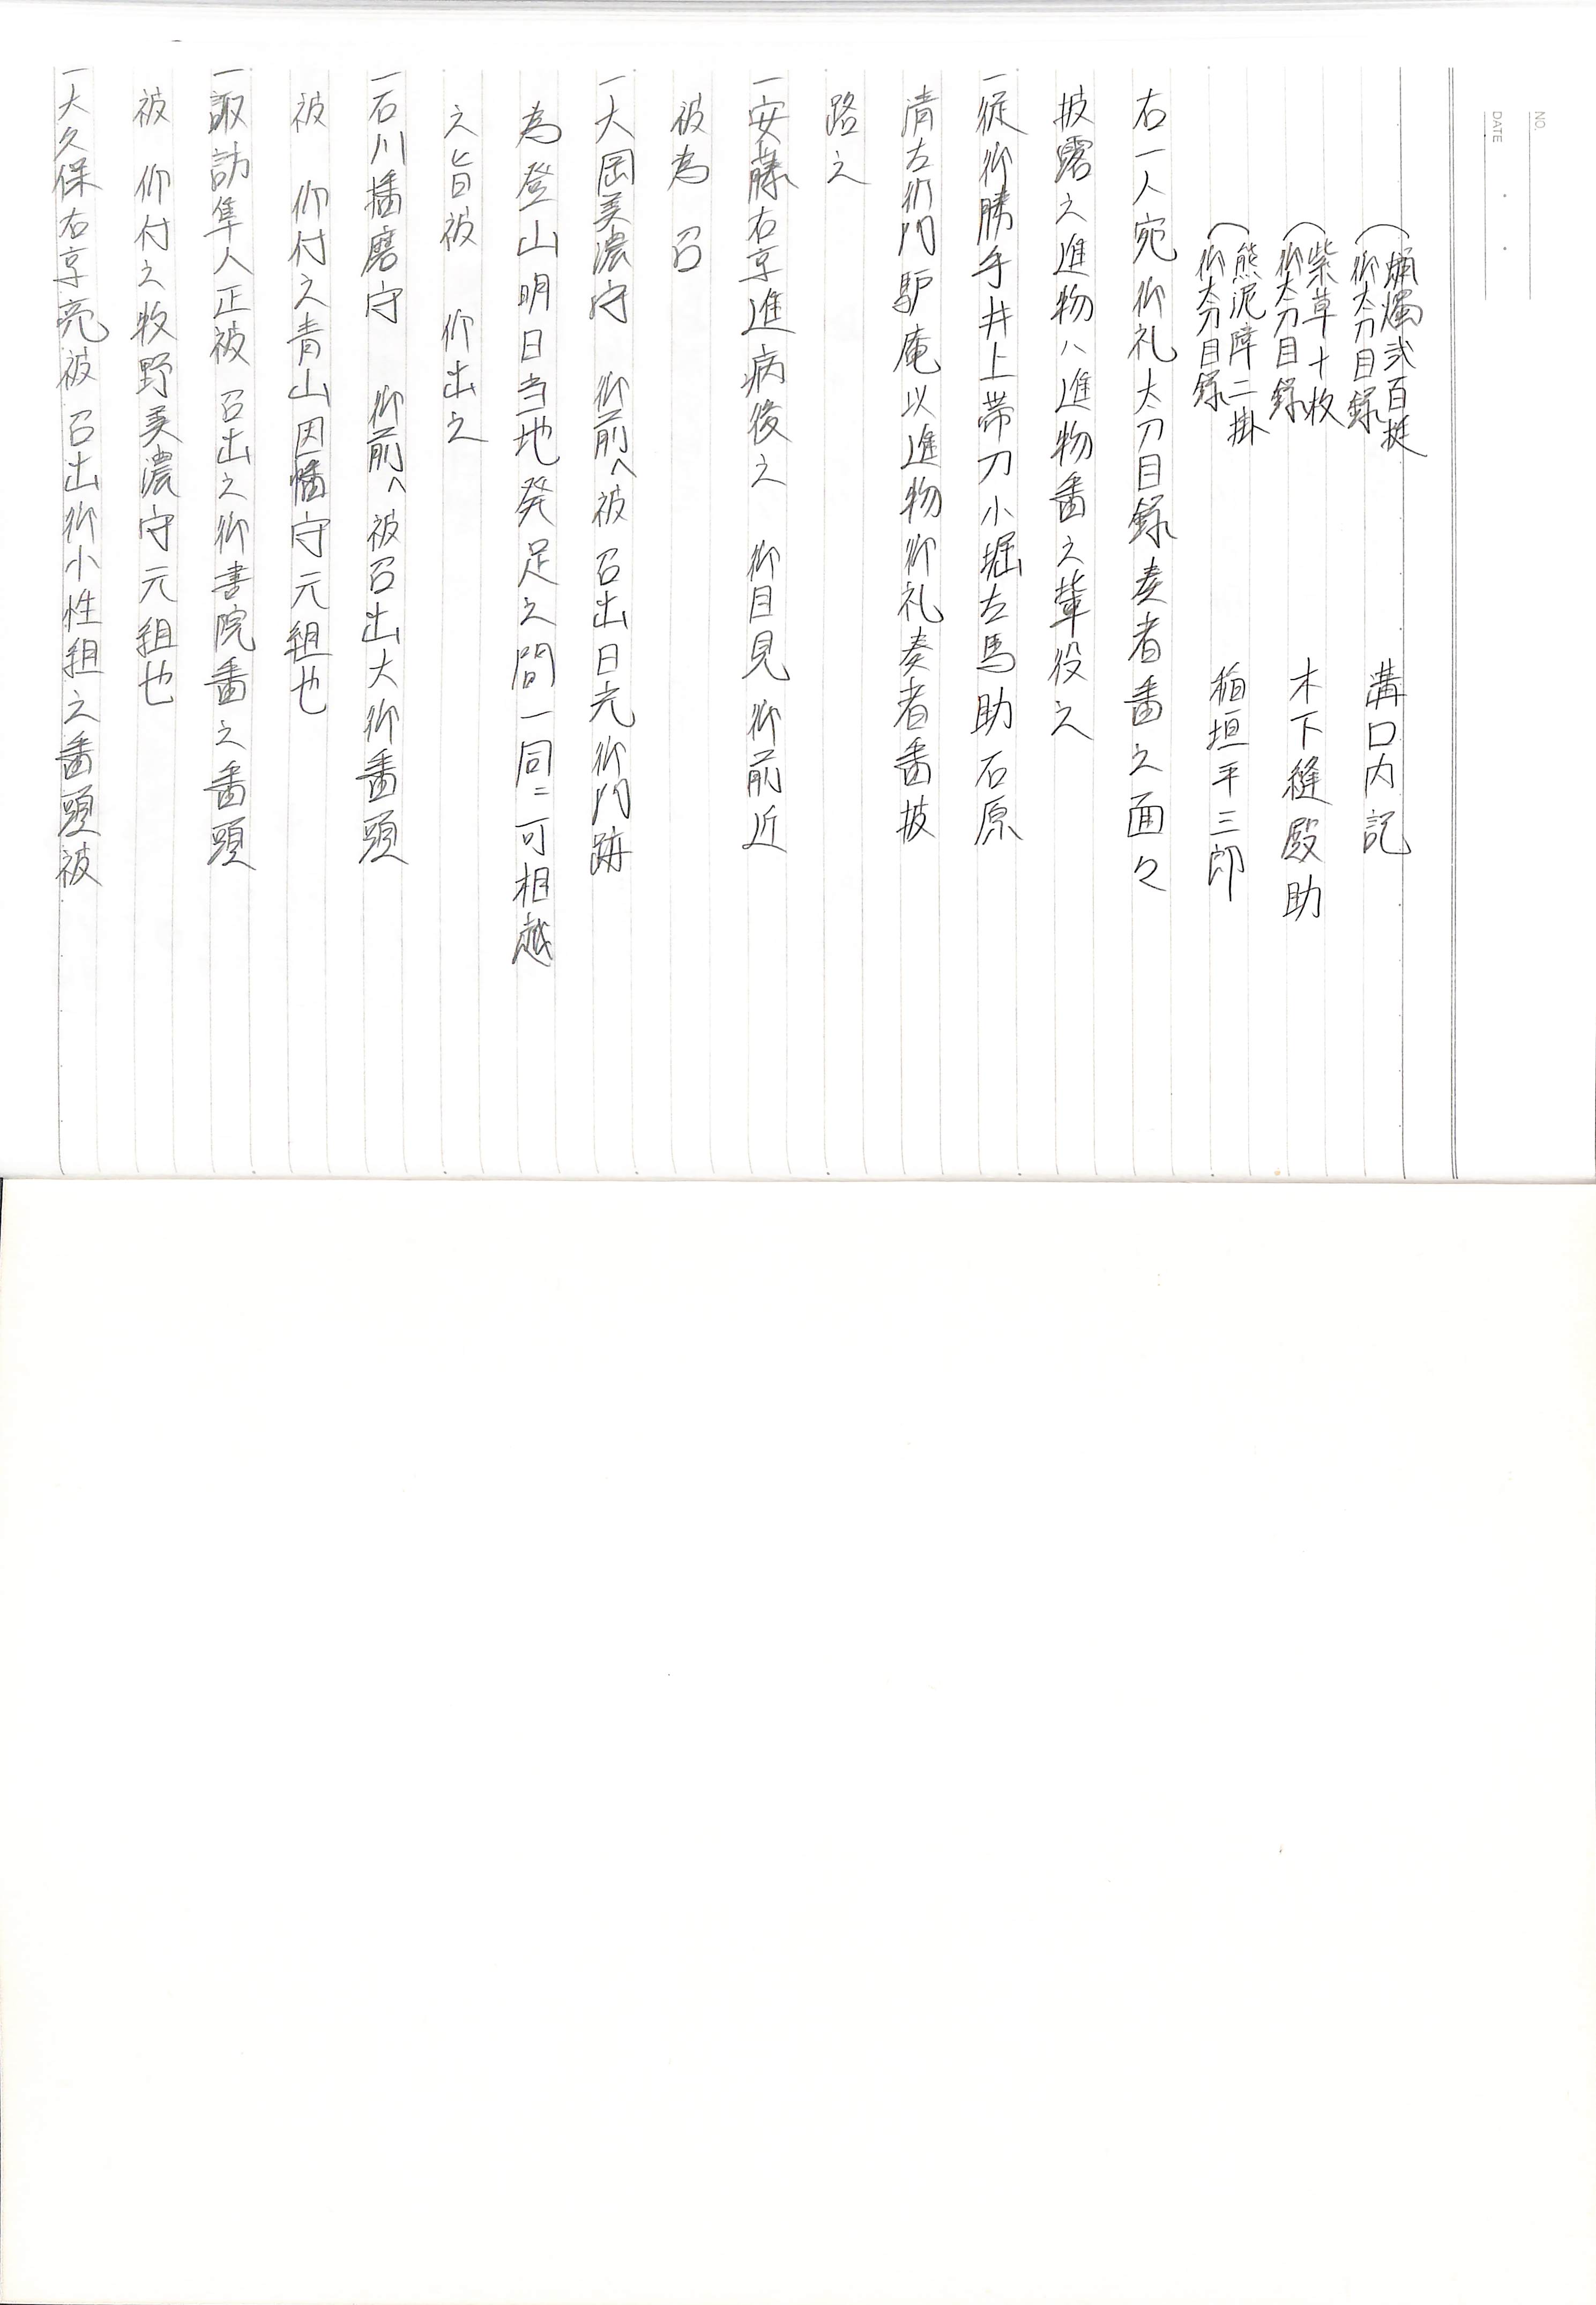 NO.
DATE
蝋燭弐百挺
御太刀目録
溝口内記
紫草十枚
御太刀目録
木下縫殿助
熊泥障二掛
御太刀目録
稲垣平三郎
右一人宛御礼太刀目録奏者番之面々
披露之進物ハ進物番之輩役之
一従御勝手井上帯刀小堀左馬助石原
清左衛門驢庵以進物御礼奏者番披
路之
一安藤右京進病後之 御目見 御前近
被為 召
一大岡美濃守 御前へ被 召出日光御門跡
為登山明日当地発足之間一同ニ可相越
之旨被 仰出之
一石川播磨守 御前へ被召出大御番頭
被 仰付之青山因幡守元組也
一諏訪隼人正被 召出之御書院番之番頭
被 仰付之牧野美濃守元組也
一大久保右京亮被 召出御小性組之番頭被